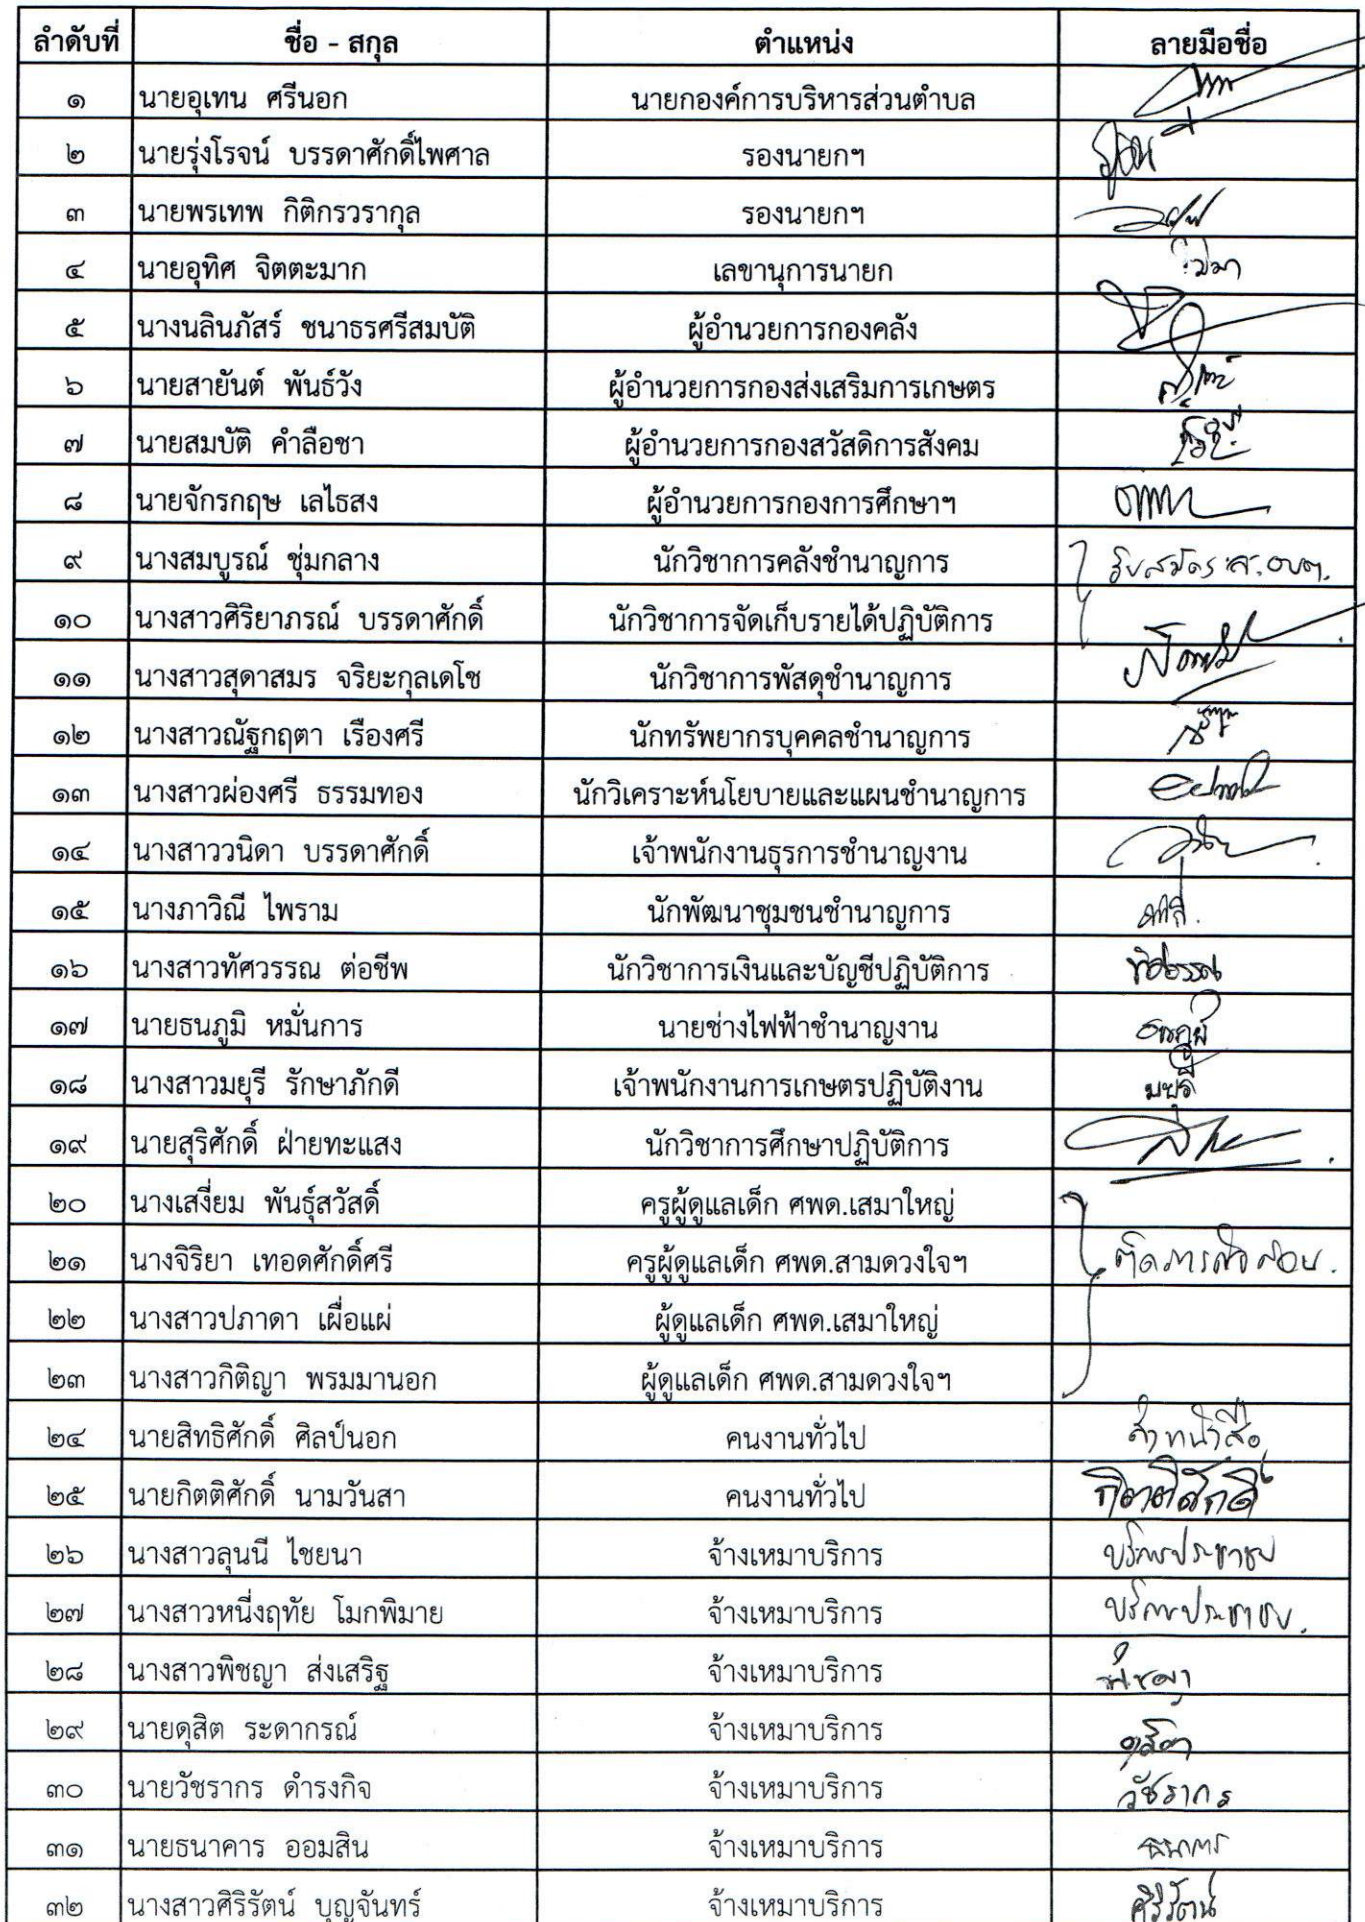 ลำดับที่ ชื่อ - สกุล ตำแหน่ง ลายมือชื่อ
๑ นายอุเทน ศรีนอก นายกองค์การบริหารส่วนตำบล
๒ นายรุ่งโรจน์ บรรดาศักดิ์ไพศาล รองนายกฯ
๓ นายพรเทพ กิติกรวรากุล รองนายกฯ
๔ นายอุทิศ จิตตะมาก เลขานุการนายก
๕ นางนลินภัสร์ ชนาธรศรีสมบัติ ผู้อำนวยการกองคลัง
๖ นายสายันต์ พันธ์วัง ผู้อำนวยการกองส่งเสริมการเกษตร
๗ นายสมบัติ คำลือชา ผู้อำนวยการกองสวัสดิการสังคม
๘ นายจักรกฤษ เลไธสง ผู้อำนวยการกองการศึกษาฯ
๙ นางสมบูรณ์ ชุ่มกลาง นักวิชาการคลังชำนาญการ รับสมัคร ส.อบต.
๑๐ นางสาวศิริยาภรณ์ บรรดาศักดิ์ นักวิชาการจัดเก็บรายได้ปฏิบัติการ
๑๑ นางสาวสุดาสมร จริยะกุลเดโช นักวิชาการพัสดุชำนาญการ
๑๒ นางสาวณัฐกฤตา เรืองศรี นักทรัพยากรบุคคลชำนาญการ
๑๓ นางสาวผ่องศรี ธรรมทอง นักวิเคราะห์นโยบายและแผนชำนาญการ
๑๔ นางสาววนิดา บรรดาศักดิ์ เจ้าพนักงานธุรการชำนาญงาน
๑๕ นางภาวิณี ไพราม นักพัฒนาชุมชนชำนาญการ
๑๖ นางสาวทัศวรรณ ต่อชีพ นักวิชาการเงินและบัญชีปฏิบัติการ ทัศวรรณ
๑๗ นายธนภูมิ หมั่นการ นายช่างไฟฟ้าชำนาญงาน ธนภูมิ
๑๘ นางสาวมยุรี รักษาภักดี เจ้าพนักงานการเกษตรปฏิบัติงาน มยุรี
๑๙ นายสุริศักดิ์ ฝ่ายทะแสง นักวิชาการศึกษาปฏิบัติการ
๒๐ นางเสงี่ยม พันธุ์สวัสดิ์ ครูผู้ดูแลเด็ก ศพด.เสมาใหญ่
๒๑ นางจิริยา เทอดศักดิ์ศรี ครูผู้ดูแลเด็ก ศพด.สามดวงใจฯ
๒๒ นางสาวปภาดา เผื่อแผ่ ผู้ดูแลเด็ก ศพด.เสมาใหญ่
๒๓ นางสาวกิติญา พรมมานอก ผู้ดูแลเด็ก ศพด.สามดวงใจฯ
๒๔ นายสิทธิศักดิ์ ศิลป์นอก คนงานทั่วไป
๒๕ นายกิตติศักดิ์ นามวันสา คนงานทั่วไป กิตติศักดิ์
๒๖ นางสาวลุนนี ไชยนา จ้างเหมาบริการ บริการประชาชน
๒๗ นางสาวหนึ่งฤทัย โมกพิมาย จ้างเหมาบริการ บริการประชาชน.
๒๘ นางสาวพิชญา ส่งเสริฐ จ้างเหมาบริการ พิชญา
๒๙ นายดุสิต ระดากรณ์ จ้างเหมาบริการ ดุสิต
๓๐ นายวัชรากร ดำรงกิจ จ้างเหมาบริการ วัชรากร
๓๑ นายธนาคาร ออมสิน จ้างเหมาบริการ ธนาคาร
๓๒ นางสาวศิริรัตน์ บุญจันทร์ จ้างเหมาบริการ ศิริรัตน์